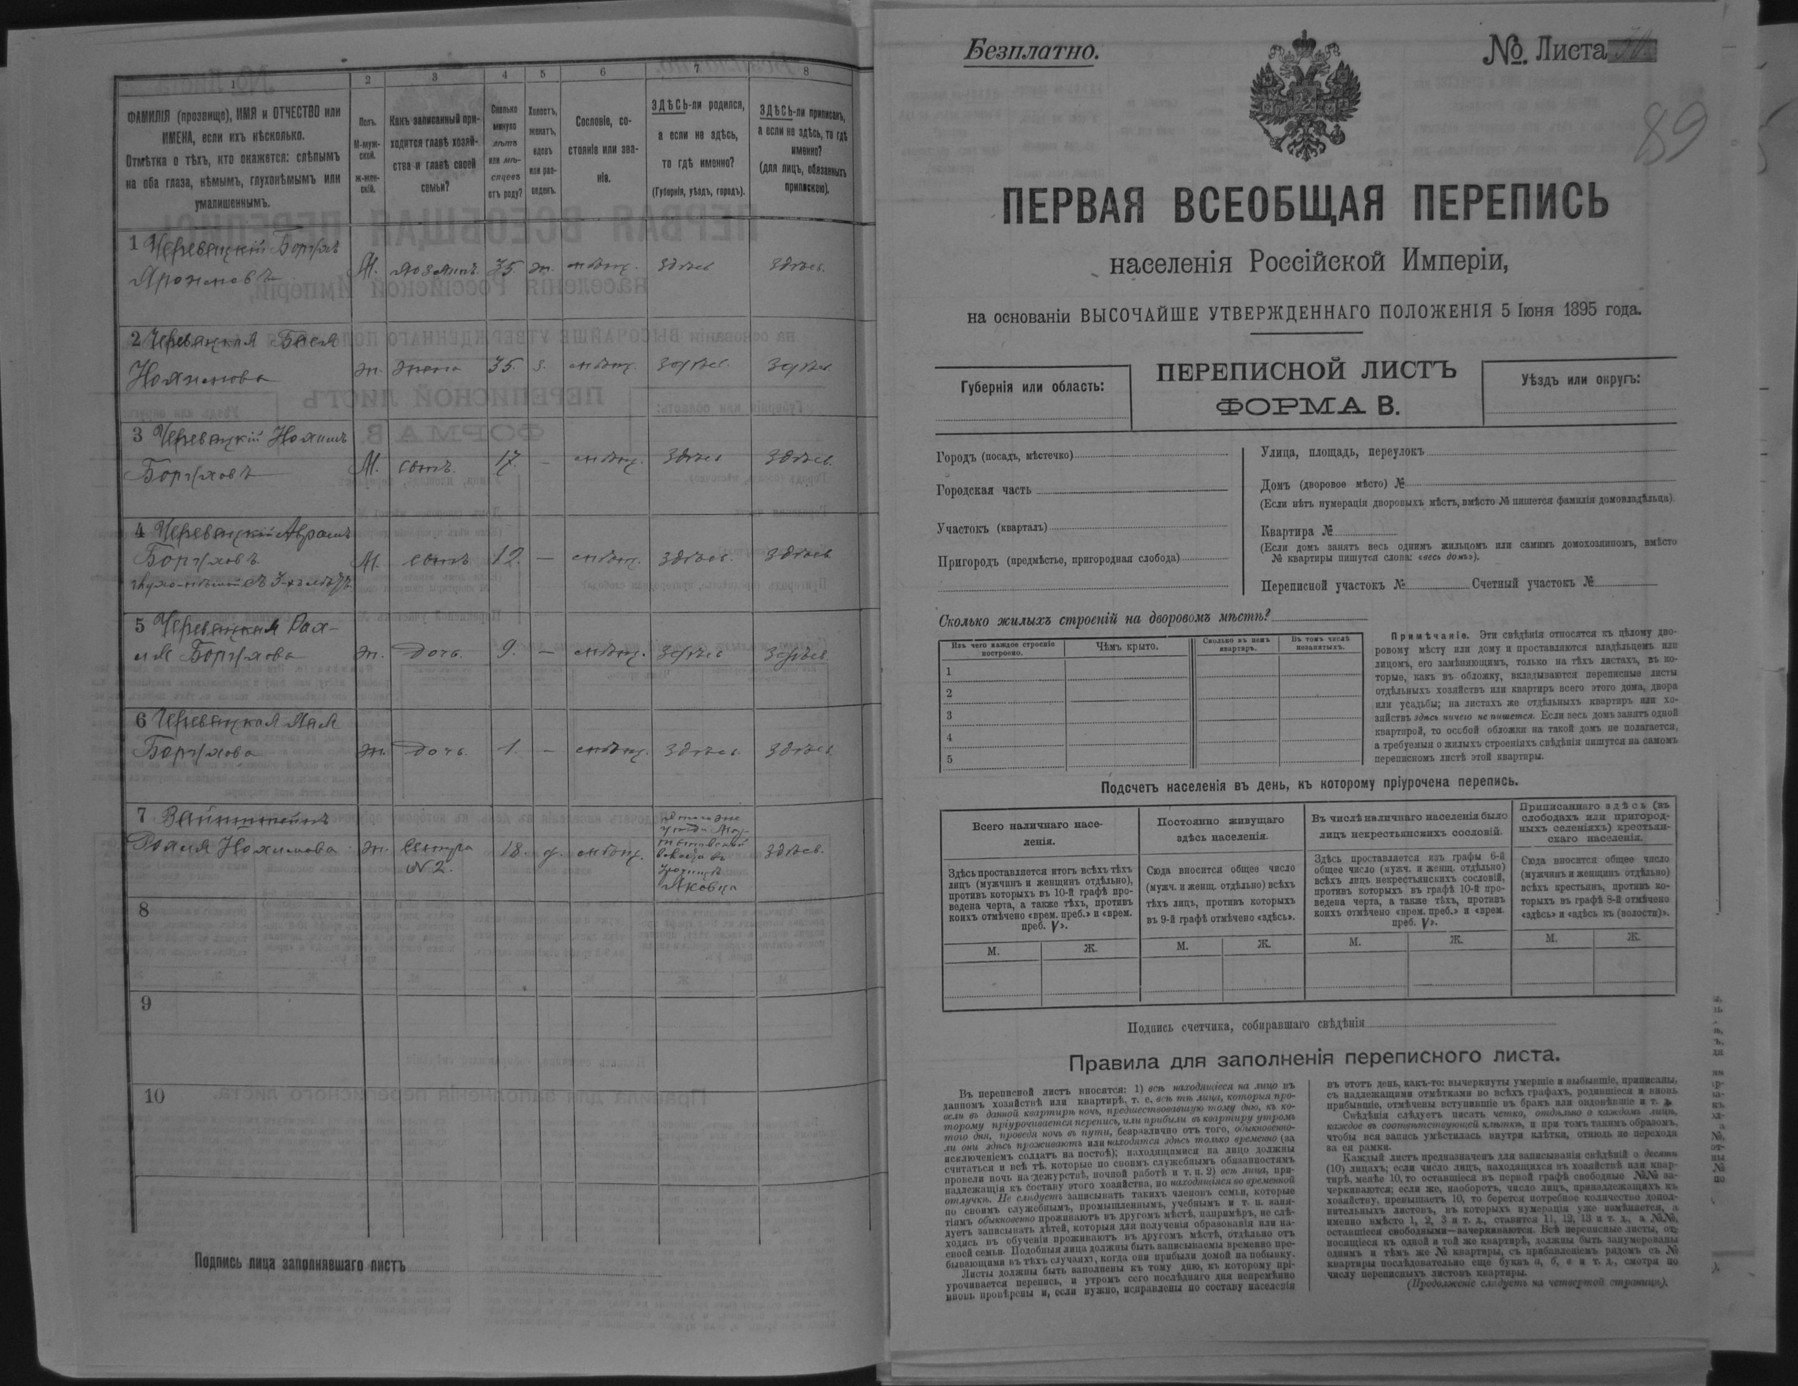 1
2
3
4
5
6
7
8
ФАМИЛІЯ (прозвище), ИМЯ и ОТЧЕСТВО или
ИМЕНА, если ихъ нѣсколько.
Отмѣтка о тѣхъ, кто окажется: слѣпымъ
на оба глаза, нѣмымъ, глухонѣмымъ или
умалишеннымъ.
Полъ.
М-муж-
ской.
ж-жен-
скій.
Какъ записанный при-
ходится главѣ хозяй-
ства и главѣ своей
семьи?
Сколько
минуло
лѣтъ
или мѣ-
сяцевъ
отъ роду?
Холостъ,
женатъ,
вдовъ
или раз-
веденъ.
Сословіе, со-
стояніе или зва-
ніе.
ЗДѢСЬ-ли родился,
а если не здѣсь,
то гдѣ именно?
(Губернія, уѣздъ, городъ).
ЗДѢСЬ-ли приписанъ,
а если не здѣсь, то гдѣ
именно?
(для лицъ, обязанныхъ
припискою).
1 Черевацкій Борухъ
М. хозяинъ 35 ж. мѣщ. здѣсь здѣсь
2 Черевацкая Бася
Нохимова ж. жена 35. з. мѣщ. здѣсь здѣсь
3 Черевацкій Нохимъ
Боруховъ М. сынъ. 17. — мѣщ. здѣсь здѣсь
4 Черевацкій Аврамъ
Боруховъ М. сынъ 12. — мѣщ. здѣсь здѣсь
5 Черевацкая Рах-
Борухова ж. дочь. 9. — мѣщ. здѣсь здѣсь
6 Черевацкая
Борухова ж. дочь. 1. — мѣщ. здѣсь здѣсь
7 Вайнштейнъ
Нохимова ж. сестра 18. мѣщ. здѣсь.
№ 2.
8
9
10
Подпись лица заполнявшаго листъ
Безплатно.
№ Листа
89
ПЕРВАЯ ВСЕОБЩАЯ ПЕРЕПИСЬ
населенія Россійской Имперіи,
на основаніи ВЫСОЧАЙШЕ УТВЕРЖДЕННАГО ПОЛОЖЕНІЯ 5 Іюня 1895 года.
Губернія или область:
ПЕРЕПИСНОЙ ЛИСТЪ
ФОРМА В.
Уѣздъ или округъ:
Городъ (посадъ, мѣстечко)
Городская часть
Участокъ (кварталъ)
Пригородъ (предмѣстье, пригородная слобода)
Улица, площадь, переулокъ
Домъ (дворовое мѣсто) №
(Если нѣтъ нумераціи дворовыхъ мѣстъ, вмѣсто № пишется фамилія домовладѣльца)
Квартира №
(Если домъ занятъ весь однимъ жильцомъ или самимъ домохозяиномъ, вмѣсто
№ квартиры пишутся слова: «весь домъ»).
Переписной участокъ № Счетный участокъ №
Сколько жилыхъ строеній на дворовомъ мѣстѣ?
Изъ чего каждое строеніе
построено.
Чѣмъ крыто.
Сколько въ немъ
квартиръ.
Въ томъ числѣ
незанятыхъ.
1
2
3
4
5
Примѣчаніе. Эти свѣдѣнія относятся къ цѣлому дво-
ровому мѣсту или дому и проставляются владѣльцемъ или
лицомъ, его замѣняющимъ, только на тѣхъ листахъ, въ ко-
торые, какъ въ обложку, вкладываются переписные листы
отдѣльныхъ хозяйствъ или квартиръ всего этого дома, двора
или усадьбы; на листахъ же отдѣльныхъ квартиръ или хо-
зяйствъ здѣсь ничего не пишется. Если весь домъ занятъ одной
квартирой, то особой обложки на такой домъ не полагается,
а требуемыя о жилыхъ строеніяхъ свѣдѣнія пишутся на самомъ
переписномъ листѣ этой квартиры.
Подсчетъ населенія въ день, къ которому пріурочена перепись.
Всего наличнаго насе-
ленія.
Здѣсь проставляется итогъ всѣхъ тѣхъ
лицъ (мужчинъ и женщинъ отдѣльно),
противъ которыхъ въ 10-й графѣ про-
ведена черта, а также тѣхъ, противъ
коихъ отмѣчено «врем. преб.» и «врем.
преб. V».
Постоянно живущаго
здѣсь населенія.
Сюда вносится общее число
(мужч. и женщ. отдѣльно) всѣхъ
тѣхъ лицъ, противъ которыхъ
въ 9-й графѣ отмѣчено «здѣсь».
Въ числѣ наличнаго населенія было
лицъ некрестьянскихъ сословій.
Здѣсь проставляется изъ графы 6-й
общее число (мужч. и женщ. отдѣльно)
всѣхъ лицъ некрестьянскихъ сословій,
противъ которыхъ въ графѣ 10-й про-
ведена черта, а также тѣхъ, противъ
коихъ отмѣчено «врем. преб.» и «врем.
преб. V».
Приписаннаго здѣсь (въ
слободахъ или пригород-
ныхъ селеніяхъ) крестьян-
скаго населенія.
Сюда вносится общее число
(мужчинъ и женщинъ отдѣльно)
всѣхъ крестьянъ, противъ ко-
торыхъ въ графѣ 8-й отмѣчено
«здѣсь» и «здѣсь къ (волости)».
М. Ж. М. Ж. М. Ж. М. Ж.
Подпись счетчика, собиравшаго свѣдѣнія
Правила для заполненія переписного листа.
Въ переписной листъ вносятся: 1) всѣ находящіеся на лицо въ
данномъ хозяйствѣ или квартирѣ, т. е. всѣ тѣ лица, которыя про-
вели въ данной квартирѣ ночь, предшествовавшую тому дню, къ ко-
торому пріурочивается перепись, или прибыли въ квартиру утромъ
того дня, проведя ночь въ пути, безразлично отъ того, обыкновенно-
ли они здѣсь проживаютъ или находятся здѣсь только временно (за
исключеніемъ солдатъ на постоѣ); находящимися на лицо должны
считаться и всѣ тѣ, которые по своимъ служебнымъ обязанностямъ
провели ночь на дежурствѣ, ночной работѣ и т. п. 2) всѣ лица, при-
надлежащія къ составу этого хозяйства, но находящіяся во временной
отлучкѣ. Не слѣдуетъ записывать такихъ членовъ семьи, которые
по своимъ служебнымъ, промышленнымъ, учебнымъ и т. п. заня-
тіямъ обыкновенно проживаютъ въ другомъ мѣстѣ, напримѣръ, не слѣ-
дуетъ записывать дѣтей, которыя для полученія образованія или на-
ходясь въ обученіи проживаютъ въ другомъ мѣстѣ, отдѣльно отъ
своей семьи. Подобныя лица должны быть записываемы временно пре-
бывающими въ тѣхъ случаяхъ, когда они прибыли домой на побывку.
Листы должны быть заполнены къ тому дню, къ которому прі-
урочивается перепись, и утромъ сего послѣдняго дня непремѣнно
вновь провѣрены и, если нужно, исправлены по составу населенія
въ этотъ день, какъ-то: вычеркнуты умершіе и выбывшіе, приписаны,
съ надлежащими отмѣтками во всѣхъ графахъ, родившіеся и вновь
прибывшіе, отмѣчены вступившіе въ бракъ или овдовѣвшіе и т. д.
Свѣдѣнія слѣдуетъ писать четко, отдѣльно о каждомъ лицѣ,
каждое въ соотвѣтствующей клѣткѣ, и при томъ такимъ образомъ,
чтобы вся запись умѣстилась внутри клѣтки, отнюдь не переходя
за ея рамки.
Каждый листъ предназначенъ для записыванія свѣдѣній о десяти
(10) лицахъ; если число лицъ, находящихся въ хозяйствѣ или квар-
тирѣ, менѣе 10, то оставшіеся въ первой графѣ свободные №№ за-
черкиваются; если же, наоборотъ, число лицъ, принадлежащихъ къ
хозяйству, превышаетъ 10, то берется потребное количество допол-
нительныхъ листовъ, въ которыхъ нумерація уже измѣняется, а
именно вмѣсто 1, 2, 3 и т. д., ставится 11, 12, 13 и т. д., а №№,
оставшіеся свободными—зачеркиваются. Всѣ переписные листы, от-
носящіеся къ одной и той же квартирѣ, должны быть занумерованы
однимъ и тѣмъ же № квартиры, съ прибавленіемъ рядомъ съ №
квартиры послѣдовательно еще буквъ а, б, в и т. д., смотря по
числу переписныхъ листовъ квартиры.
(Продолженіе слѣдуетъ на четвертой страницѣ).